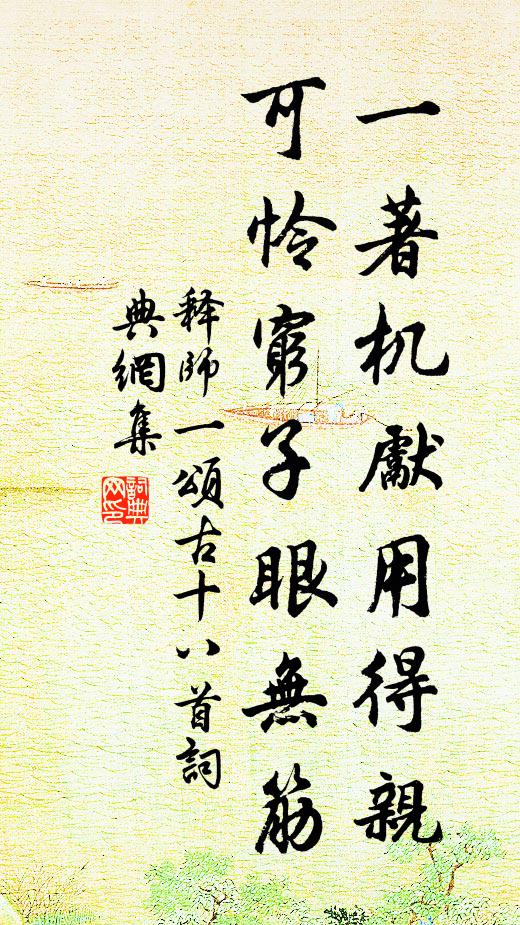 一著机獻用得親
可怜窮子眼無筋
释師一頌古十八首詞
典網集
詞典网印